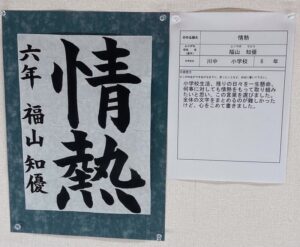 情熱
六年 福山 知優
情熱
福山 知優
川中 小学校 6 年
小学校生活、残りの日々を一生懸命、
何事に対しても情熱をもって取り組み
たいと思い、この言葉を選びました。
全体の文字をまとめるのが難しかった
けど、心をこめて書きました。